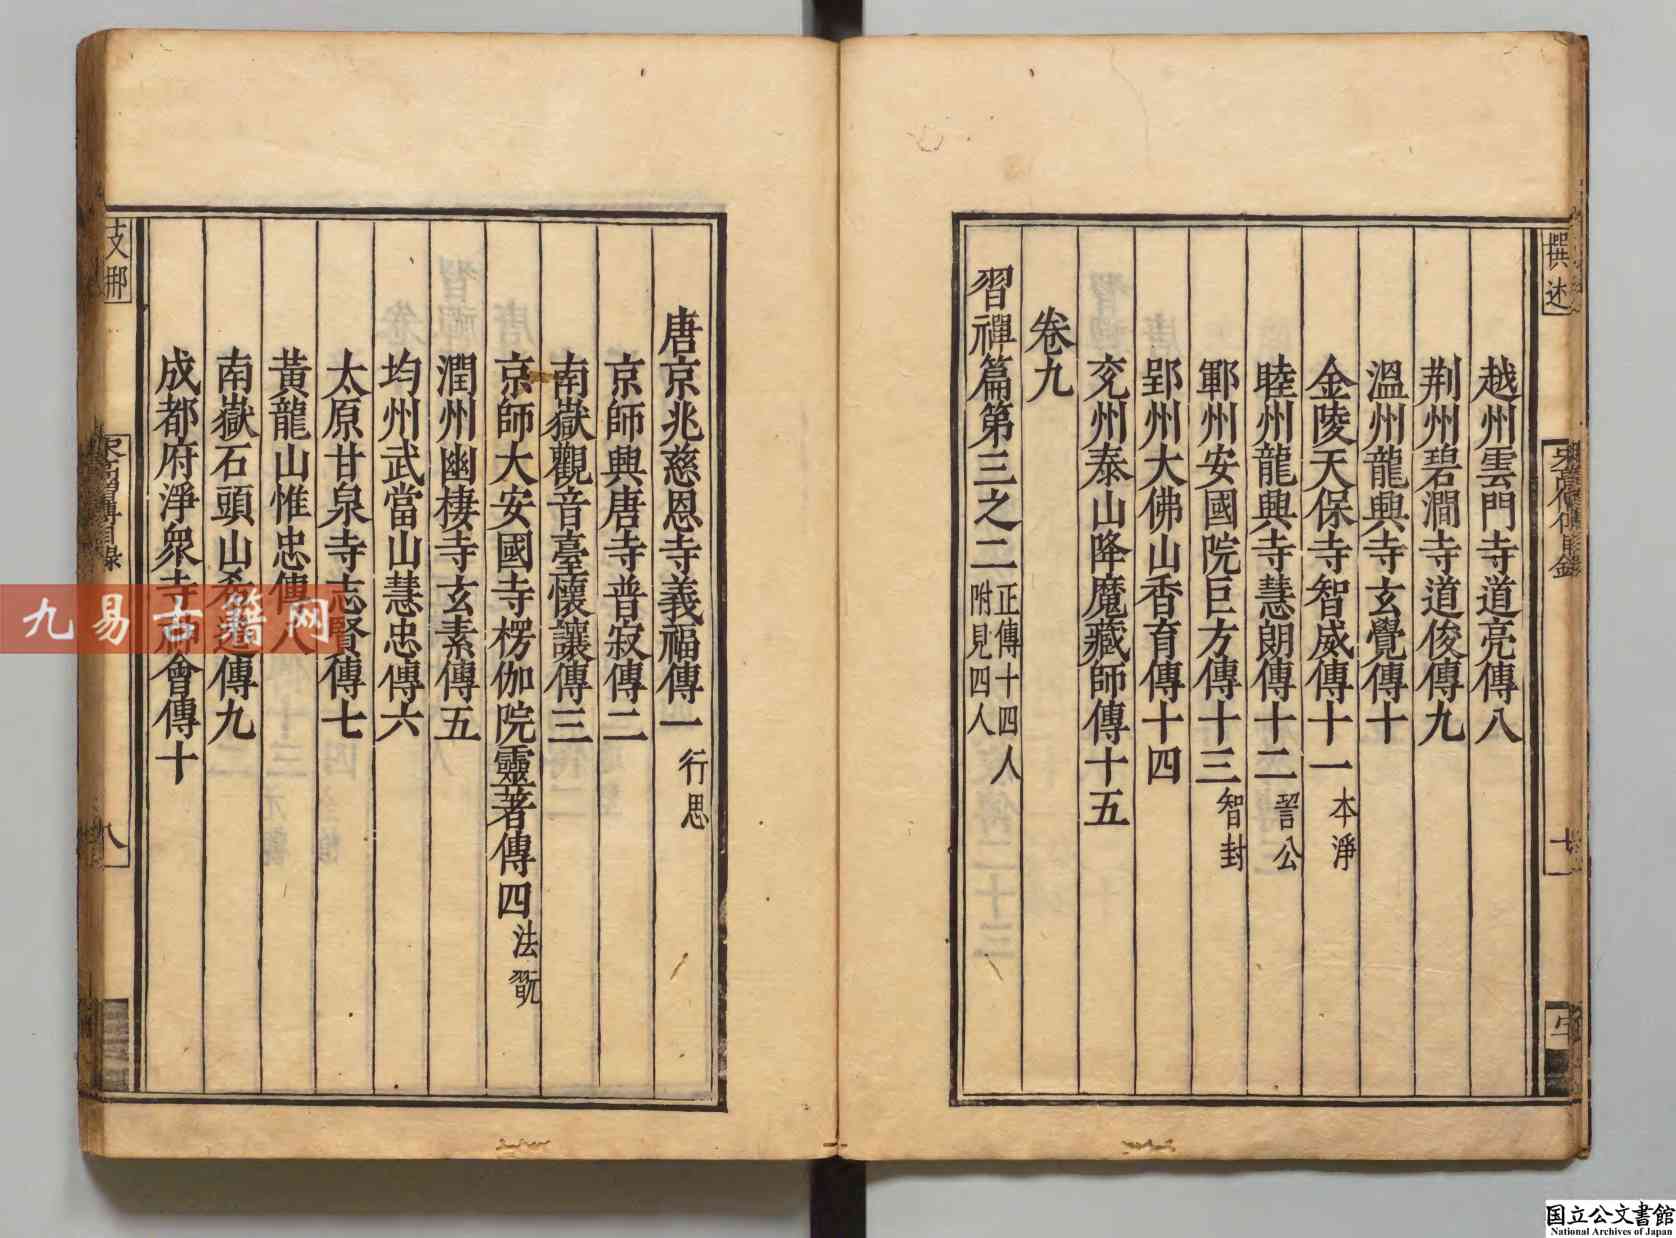 撰述
越州雲門寺道亮傳八
荆州碧澗寺道俊傳九
溫州龍興寺玄覺傳十
金陵天保寺智威傳十一 本淨
睦州龍興寺慧朗傳十二 䛒公
鄆州安國院巨方傳十三 智封
郢州大佛山香育傳十四
兖州泰山降魔藏師傳十五
卷九
習禪篇第三之二 正傳十四人 附見四人
唐京兆慈恩寺義福傳一 行思
京師興唐寺普寂傳二
南嶽觀音臺懷讓傳三
京師大安國寺楞伽院靈著傳四 法翫
潤州幽棲寺玄素傳五
均州武當山慧忠傳六
太原甘泉寺志賢傳七
黃龍山惟忠傳八
南嶽石頭山希遷傳九
成都府淨衆寺神會傳十
支那
宋高僧傳目錄
八
九易古籍网
国立公文書館
National Archives of Japan